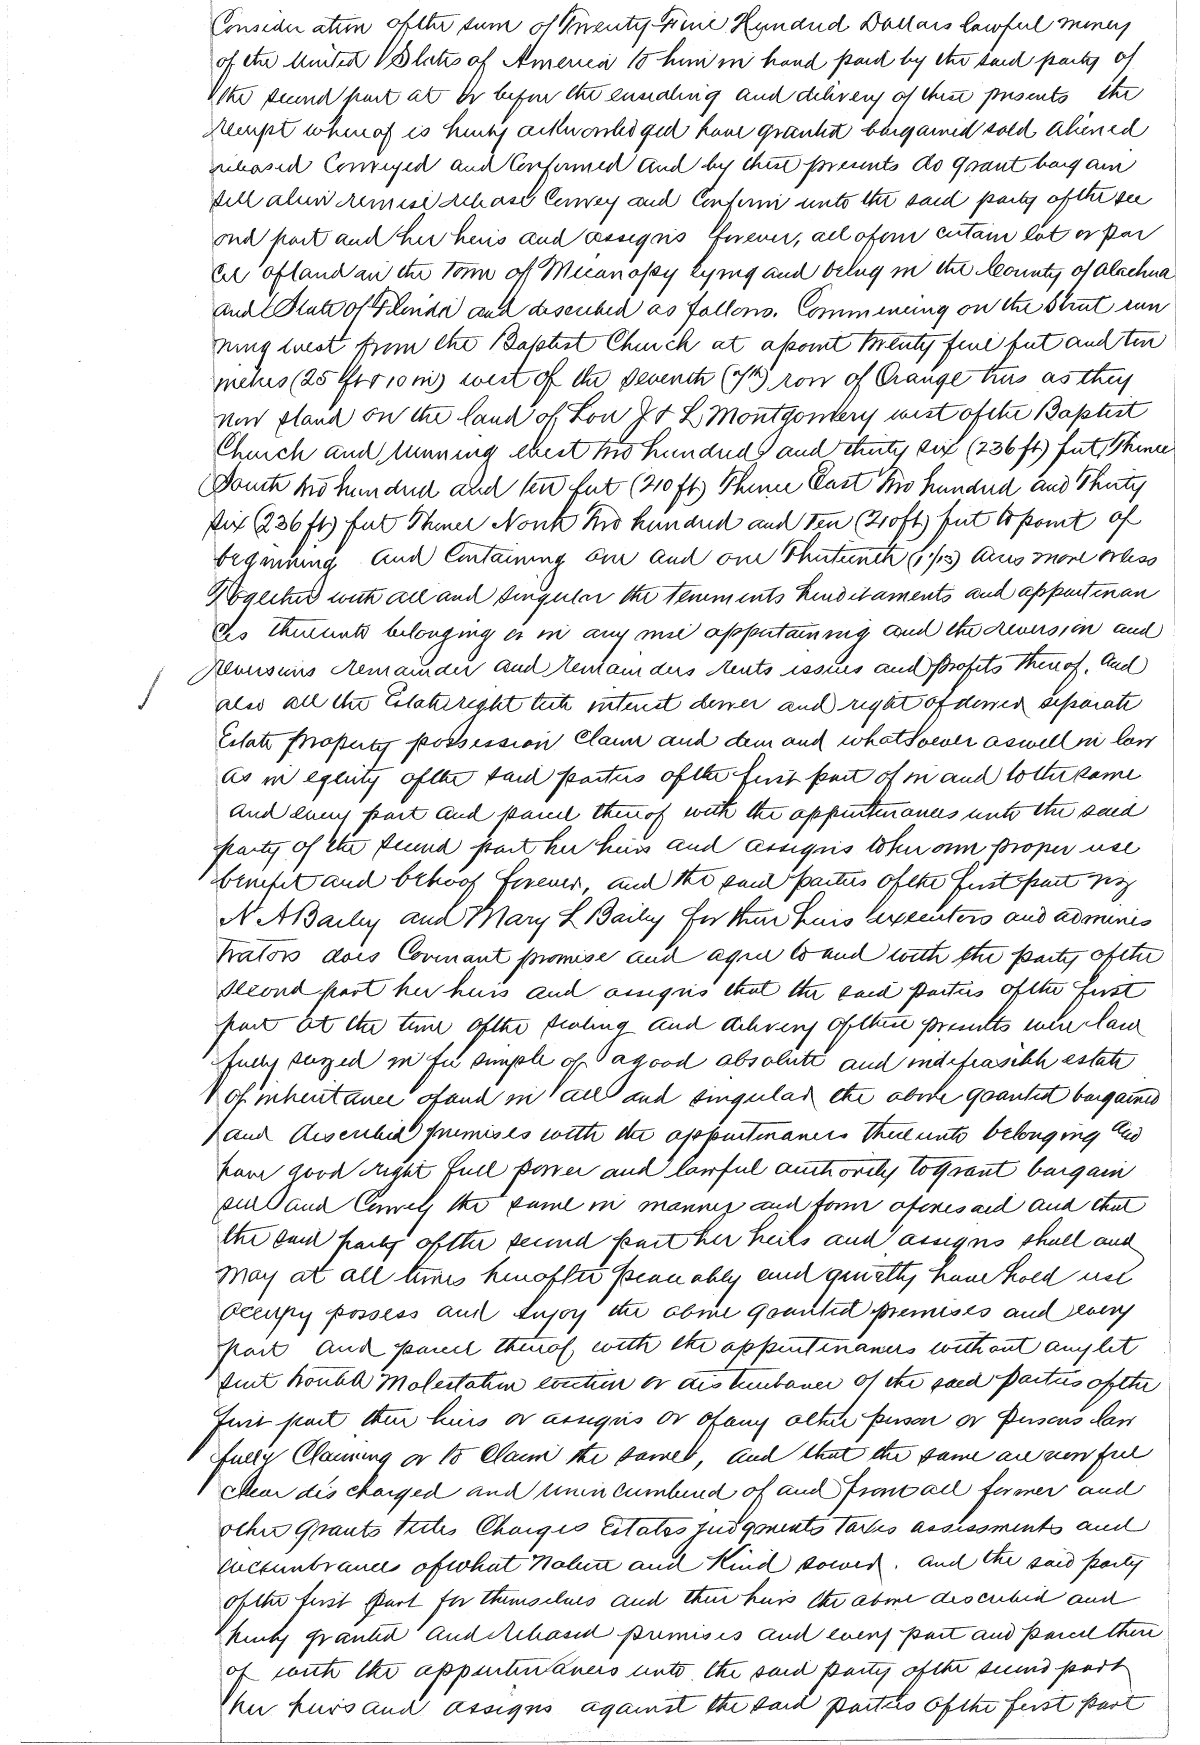 Consideration of the sum of Twenty Five Hundred Dollars lawful money
of the United States of America to him in hand paid by the said party of
the second part at or before the ensealing and delivery of these presents the
receipt whereof is hereby acknowledged have granted bargained sold aliened
released Conveyed and Confirmed and by these presents do grant bargain
sell alien remise release Convey and Confirm unto the said party of the sec
ond part and her heirs and assigns forever, all of our certain lot or par
cel of land in the Town of Micanopy lying and being in the County of Alachua
and State of Florida and described as follows. Commencing on the Street run
ning west from the Baptist Church at a point twenty five feet and ten
inches (25 ft & 10 in) west of the seventh (7th) row of Orange trees as they
now stand on the land of Lou J & L Montgomery west of the Baptist
Church and running west two hundred and thirty six (236 ft) feet, Thence
South two hundred and ten feet (210 ft) Thence East Two hundred and Thirty
six (236 ft) feet Thence North Two hundred and Ten (210 ft) feet to point of
beginning and Containing one and one Thirteenth (1 1/13) acres more or less
Together with all and singular the tenements hereditaments and appurtenan
ces thereunto belonging or in any wise appertaining and the reversion and
reversions remainder and remainders rents issues and profits thereof. And
also all the Estate right title interest dower and right of dower separate
Estate property possession Claim and demand whatsoever as well in law
as in equity of the said parties of the first part of in and to the same
and every part and parcel thereof with the appurtenances unto the said
party of the second part her heirs and assigns to her own proper use
benefit and behoof forever, and the said parties of the first part viz
N A Bailey and Mary L Bailey for their heirs executors and adminis
trators does Covenant promise and agree to and with the party of the
second part her heirs and assigns that the said parties of the first
part at the time of the sealing and delivery of these presents were law
fully seized in fee simple of a good absolute and indefeasible estate
of inheritance of and in all and singular the above granted bargained
and described premises with the appurtenances thereunto belonging and
have good right full power and lawful authority to grant bargain
sell and Convey the same in manner and form aforesaid and that
the said party of the second part her heirs and assigns shall and
may at all times hereafter peaceably and quietly have hold use
occupy possess and enjoy the above granted premises and every
part and parcel thereof, with the appurtenances without any let
suit trouble Molestation eviction or disturbance of the said parties of the
first part their heirs or assigns or of any other person or persons law
fully Claiming or to Claim the same, and that the same are now free
clear discharged and unincumbered of and from all former and
other grants titles Charges Estates judgments taxes assessments and
incumbrances of what Nature and Kind soever. and the said party
of the first part for themselves and their heirs the above described and
hereby granted and released premises and every part and parcel there
of with the appurtenances unto the said party of the second part
her heirs and assigns against the said parties of the first part